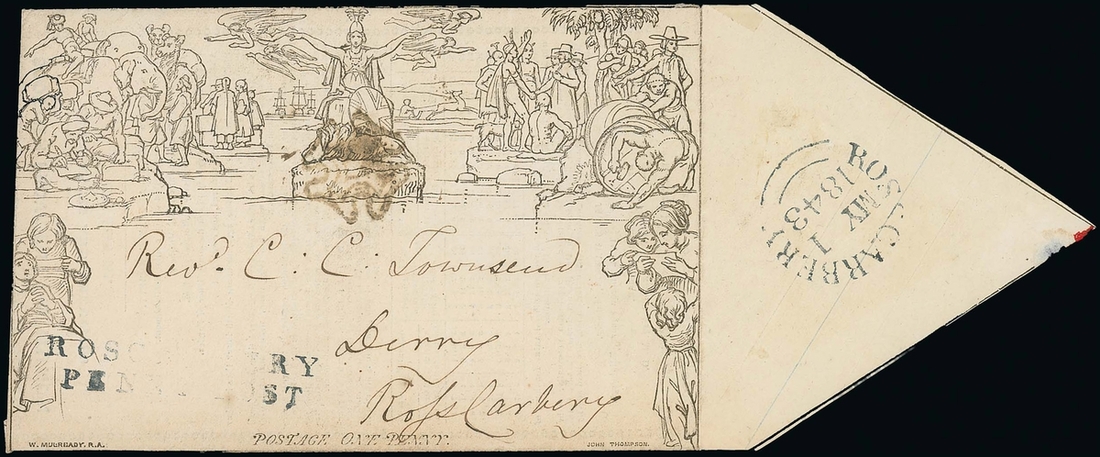 Revd. C: C: Townsend
Derry
RossCarbery
ROSC RY
PEN ST
POSTAGE ONE PENNY.
W. MULREADY, R.A.
JOHN THOMPSON.
ROSSCARBERY
MY 1
1843